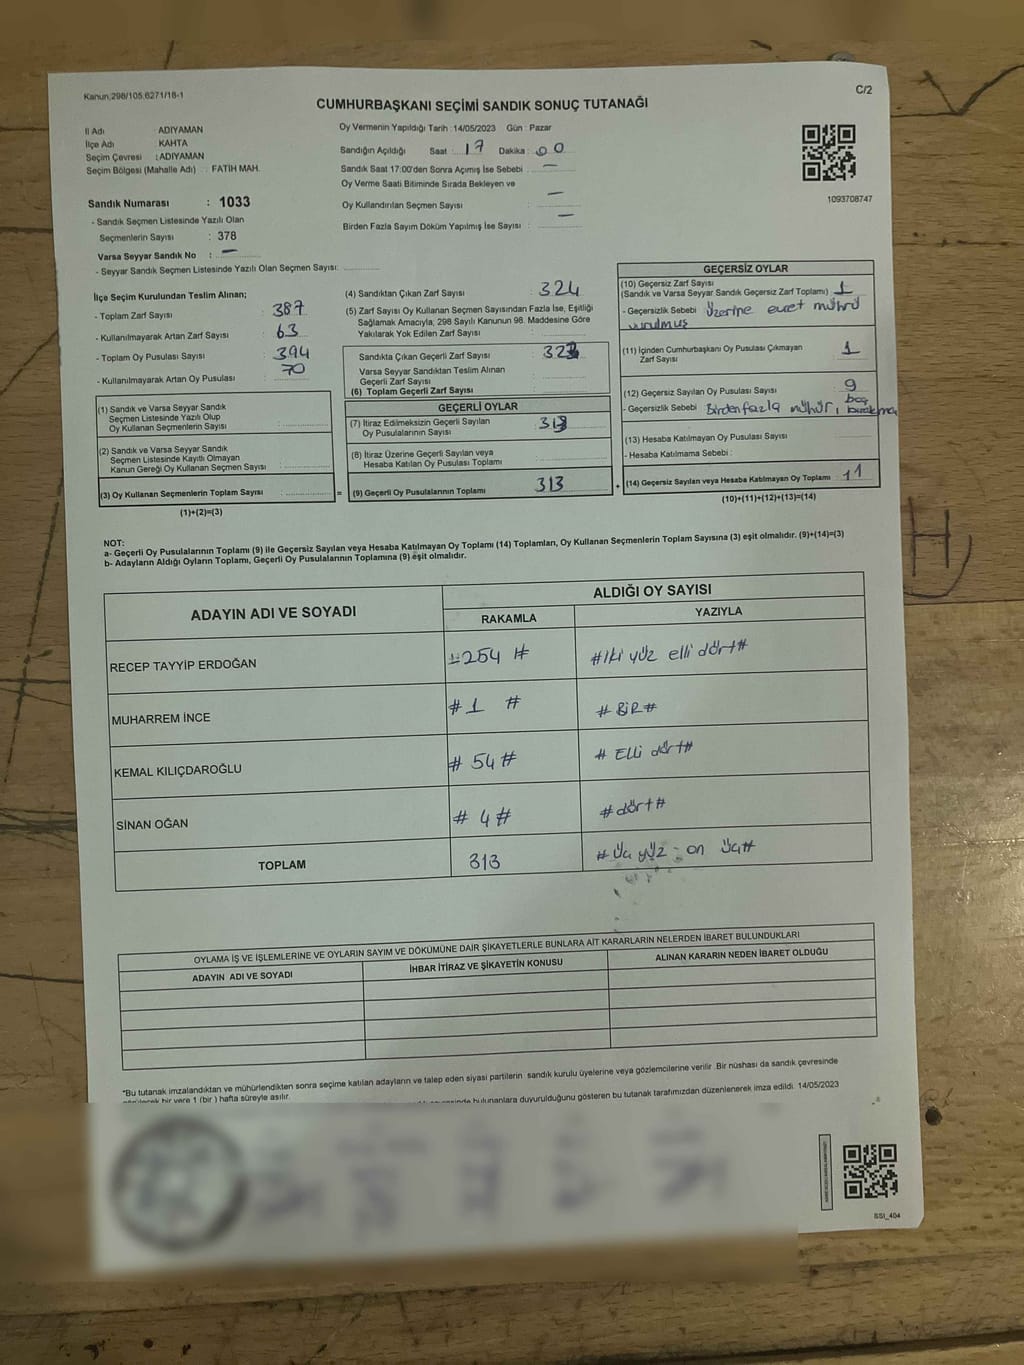 Kanun:298/105,6271/18-1
C/2
CUMHURBAŞKANI SEÇİMİ SANDIK SONUÇ TUTANAĞI
İl Adı : ADIYAMAN
İlçe Adı : KAHTA
Seçim Çevresi : ADIYAMAN
Seçim Bölgesi (Mahalle Adı) : FATİH MAH.
Sandık Numarası : 1033
- Sandık Seçmen Listesinde Yazılı Olan
Seçmenlerin Sayısı : 378
Varsa Seyyar Sandık No : —
- Seyyar Sandık Seçmen Listesinde Yazılı Olan Seçmen Sayısı:
Oy Vermenin Yapıldığı Tarih : 14/05/2023 Gün : Pazar
Sandığın Açıldığı Saat : 17 Dakika : 00
Sandık Saat 17:00'den Sonra Açımış İse Sebebi : —
Oy Verme Saati Bitiminde Sırada Bekleyen ve
Oy Kullandırılan Seçmen Sayısı : —
Birden Fazla Sayım Döküm Yapılmış İse Sayısı : —
1093708747
İlçe Seçim Kurulundan Teslim Alınan;
- Toplam Zarf Sayısı : 387
- Kullanılmayarak Artan Zarf Sayısı : 63
- Toplam Oy Pusulası Sayısı : 394
- Kullanılmayarak Artan Oy Pusulası : 70
(1) Sandık ve Varsa Seyyar Sandık
Seçmen Listesinde Yazılı Olup
Oy Kullanan Seçmenlerin Sayısı :
(2) Sandık ve Varsa Seyyar Sandık
Seçmen Listesinde Kayıtlı Olmayan
Kanun Gereği Oy Kullanan Seçmen Sayısı :
(3) Oy Kullanan Seçmenlerin Toplam Sayısı : =
(1)+(2)=(3)
(4) Sandıktan Çıkan Zarf Sayısı : 324
(5) Zarf Sayısı Oy Kullanan Seçmen Sayısından Fazla İse, Eşitliği
Sağlamak Amacıyla, 298 Sayılı Kanunun 98. Maddesine Göre
Yakılarak Yok Edilen Zarf Sayısı :
Sandıkta Çıkan Geçerli Zarf Sayısı : 323
Varsa Seyyar Sandıktan Teslim Alınan
Geçerli Zarf Sayısı :
(6) Toplam Geçerli Zarf Sayısı :
GEÇERLİ OYLAR
(7) İtiraz Edilmeksizin Geçerli Sayılan
Oy Pusulalarının Sayısı : 313
(8) İtiraz Üzerine Geçerli Sayılan veya
Hesaba Katılan Oy Pusulası Toplamı :
(9) Geçerli Oy Pusulalarının Toplamı : 313 +
GEÇERSİZ OYLAR
(10) Geçersiz Zarf Sayısı
(Sandık ve Varsa Seyyar Sandık Geçersiz Zarf Toplamı) : 1
- Geçersizlik Sebebi : Üzerine evet mührü
vurulmuş
(11) İçinden Cumhurbaşkanı Oy Pusulası Çıkmayan
Zarf Sayısı : 1
(12) Geçersiz Sayılan Oy Pusulası Sayısı : 9
- Geçersizlik Sebebi : Birden fazla mühür, boş
bırakma
(13) Hesaba Katılmayan Oy Pusulası Sayısı :
- Hesaba Katılmama Sebebi :
(14) Geçersiz Sayılan veya Hesaba Katılmayan Oy Toplamı : 11
(10)+(11)+(12)+(13)=(14)
NOT:
a- Geçerli Oy Pusulalarının Toplamı (9) ile Geçersiz Sayılan veya Hesaba Katılmayan Oy Toplamı (14) Toplamları, Oy Kullanan Seçmenlerin Toplam Sayısına (3) eşit olmalıdır. (9)+(14)=(3)
b- Adayların Aldığı Oyların Toplamı, Geçerli Oy Pusulalarının Toplamına (9) eşit olmalıdır.
ADAYIN ADI VE SOYADI
ALDIĞI OY SAYISI
RAKAMLA YAZIYLA
RECEP TAYYİP ERDOĞAN #254 # #İki yüz elli dört#
MUHARREM İNCE #1 # # BİR #
KEMAL KILIÇDAROĞLU # 54 # # Elli dört#
SİNAN OĞAN # 4 # # dört #
TOPLAM 313 # Üç yüz - on üç#
OYLAMA İŞ VE İŞLEMLERİNE VE OYLARIN SAYIM VE DÖKÜMÜNE DAİR ŞİKAYETLERLE BUNLARA AİT KARARLARIN NELERDEN İBARET BULUNDUKLARI
ADAYIN ADI VE SOYADI İHBAR İTİRAZ VE ŞİKAYETİN KONUSU ALINAN KARARIN NEDEN İBARET OLDUĞU
"Bu tutanak imzalandıktan ve mühürlendikten sonra seçime katılan adayların ve talep eden siyasi partilerin sandık kurulu üyelerine veya gözlemcilerine verilir. Bir nüshası da sandık çevresinde
görülecek bir yere 1 (bir ) hafta süreyle asılır.
bulunanlara duyurulduğunu gösteren bu tutanak tarafımızdan düzenlenerek imza edildi. 14/05/2023
SSI_404
H